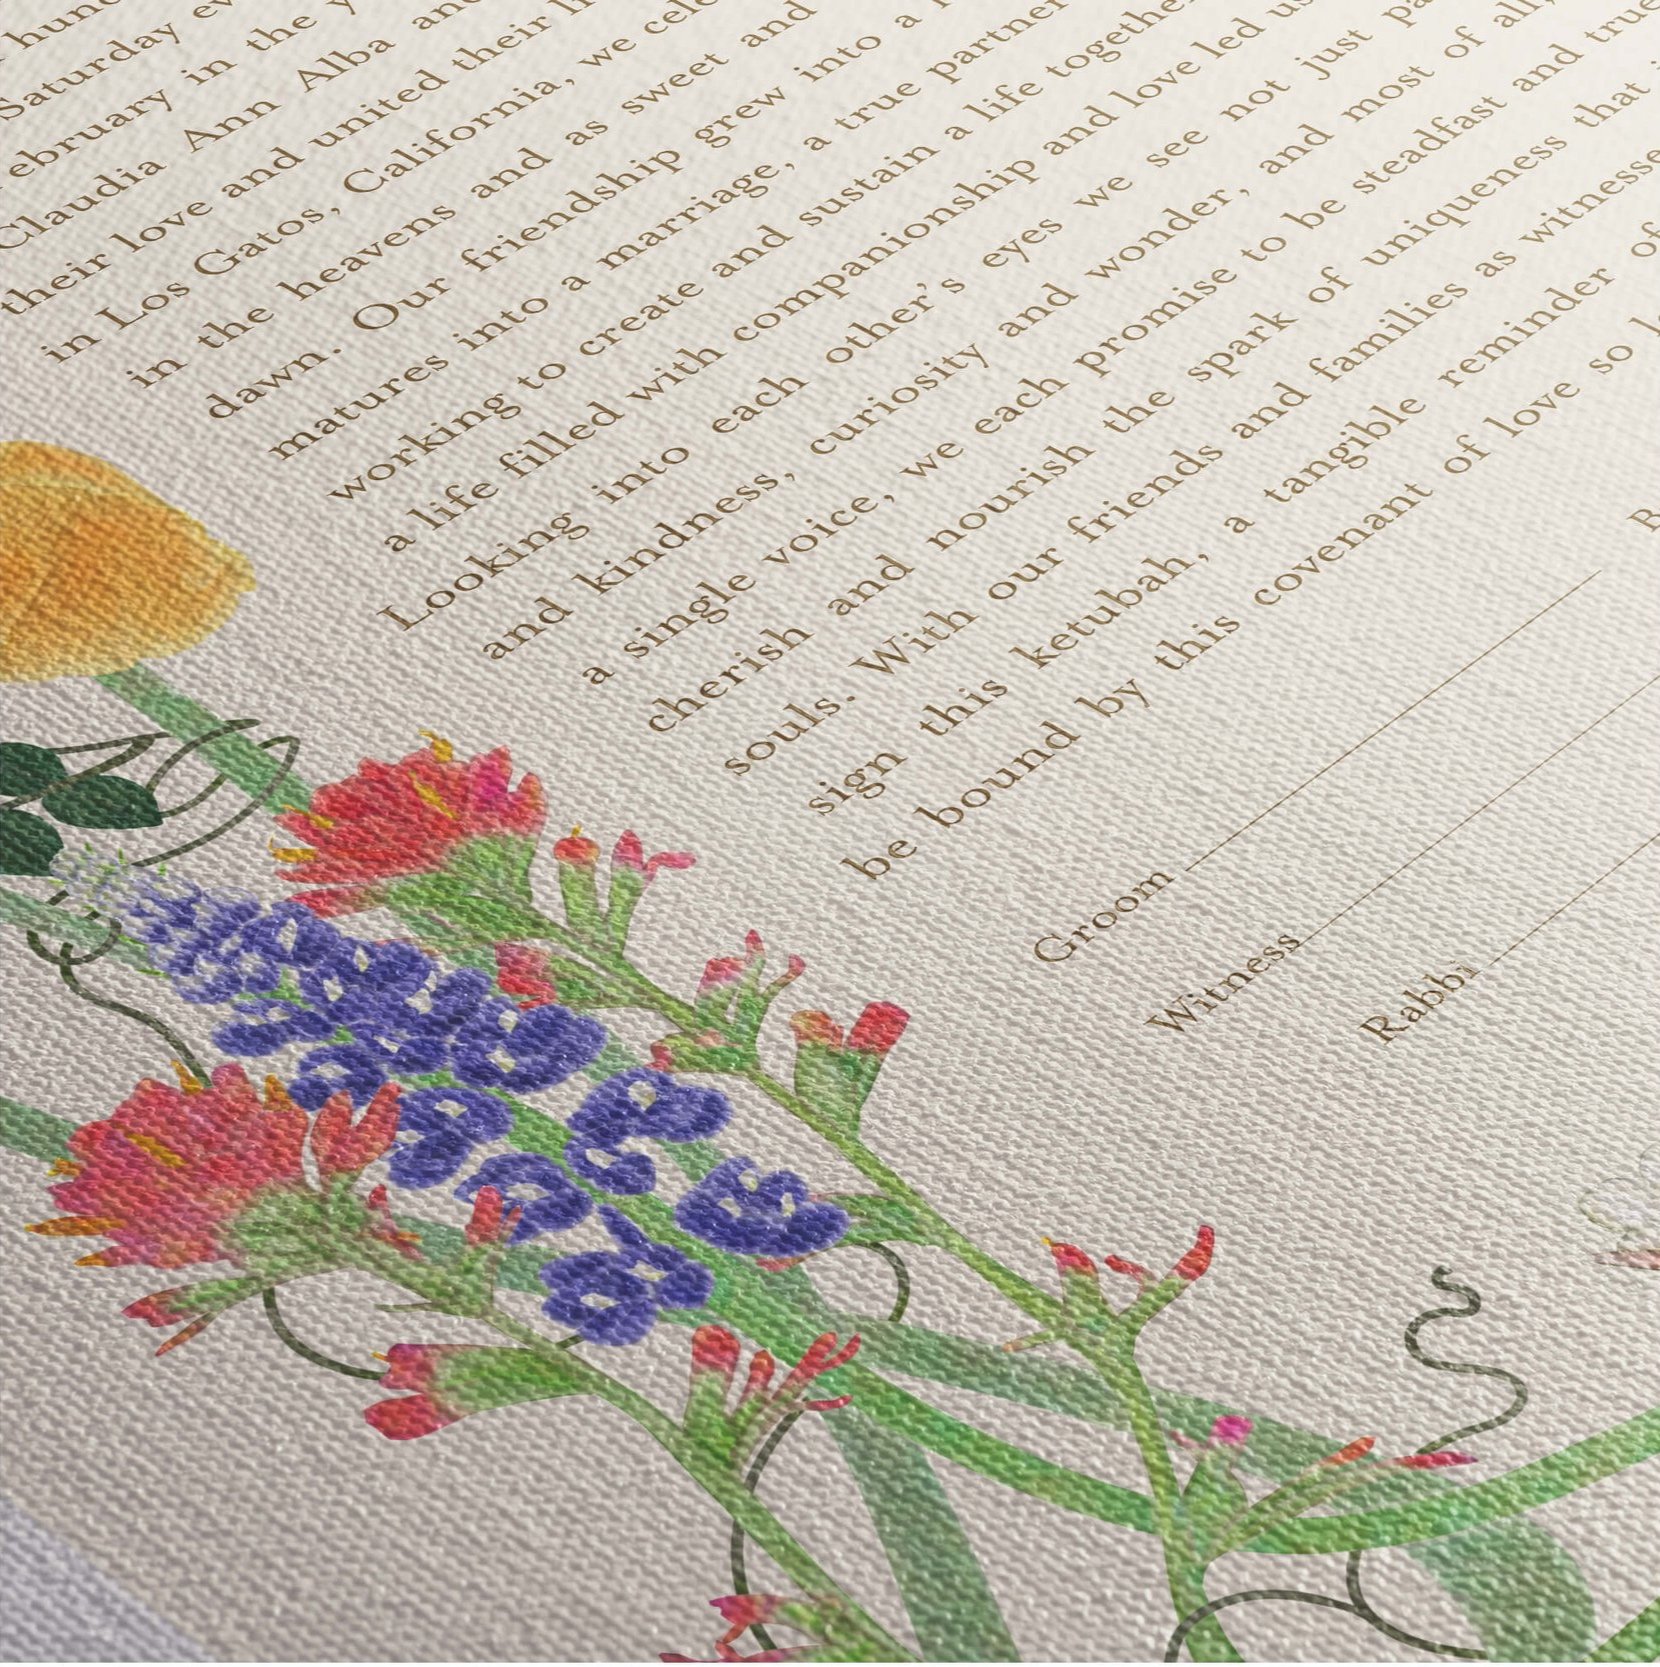 Saturday
in the
Claudia Ann Alba
their love and united their
in Los Gatos, California, we
in the heavens and as sweet and
dawn. Our friendship grew into a
matures into a marriage, a true
working to create and sustain a life
a life filled with companionship and love led
Looking into each other's eyes we see not just
and kindness, curiosity and wonder, and most of all,
a single voice, we each promise to be steadfast and true
cherish and nourish the spark of uniqueness that
souls. With our friends and families as
sign this ketubah, a tangible reminder of
be bound by this covenant of love so
Groom
Witness
Rabbi